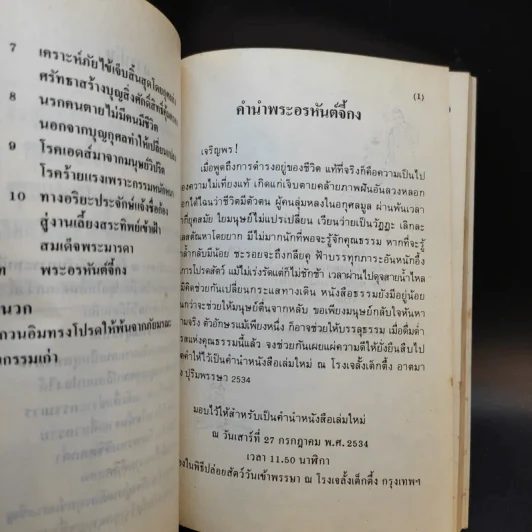 7 เคราะห์ภัยไข้เจ็บสิ้นสุดโดยกุศล
ศรัทธาสร้างบุญสิ่งศักดิ์สิทธิ์คุ้มครอง
8 นรกคนตายไม่มีคนมีชีวิต
นอกจากบุญกุศลทำให้เปลี่ยนแปลง
9 โรคเอดส์มาจากมนุษย์วิปริต
โรคร้ายแรงเพราะกรรมหนัก
10 ทางอริยะประจักษ์แจ้งชื่อก้อง
สู่งานเลี้ยงสระทิพย์เข้าเฝ้า
สมเด็จพระมารดา
พระอรหันต์จี้กง
นวก
กวนอิมทรงโปรดให้พ้นจากภัยมาณะ
กรรมเก่า
(1)
คำนำพระอรหันต์จี้กง
เจริญพร !
เมื่อพูดถึงการดำรงอยู่ของชีวิต แท้ที่จริงก็คือความเป็นไป
ของความไม่เที่ยงแท้ เกิดแก่เจ็บตายคล้ายภาพฝันอันลวงหลอก
ได้ไฉนว่าชีวิตมีตัวตน ผู้คนลุ่มหลงในอกุศลมูล ผ่านพันเวลา
กี่ยุคสมัย ใยมนุษย์ไม่แปรเปลี่ยน เวียนว่ายเป็นวัฏฏะ เลิกละ
ตัณหาโดยยาก มีไม่มากนักที่พอจะรู้จักคุณธรรม หากที่จะรู้
ล้ำกลับมีน้อย ชะรอยจะถึงกลียุค ฟ้าบรรทุกภาระอันหนักอึ้ง
การโปรดสัตว์ แม้ไม่เร่งรัดแต่ก็ไม่ชักช้า เวลาผ่านไปดุจสายน้ำไหล
มีคิดช่วยกันเปลี่ยนกระแสทางเดิน หนังสือธรรมยังมีอยู่น้อย
กว่าจะช่วยให้มนุษย์ตื่นจากหลับ ขอเพียงมนุษย์กลับใจค้นหา
ความจริง ตัวอักษรแม้เพียงหนึ่ง ก็อาจช่วยให้บรรลุธรรม เมื่อดื่มด่ำ
รสแห่งคุณธรรมนี้แล้ว จงช่วยกันเผยแผ่ความดีให้ยั่งยืนสืบไป
คำให้ไว้เป็นคำนำหนังสือเล่มใหม่ ณ โรงเจลั้งเต็กตึ้ง อาตมา
ปุริมพรรษา 2534
มอบไว้ให้สำหรับเป็นคำนำหนังสือเล่มใหม่
ณ วันเสาร์ที่ 27 กรกฎาคม พ.ศ. 2534
เวลา 11.50 นาฬิกา
ในพิธีปล่อยสัตว์วันเข้าพรรษา ณ โรงเจลั้งเต็กตึ้ง กรุงเทพฯ